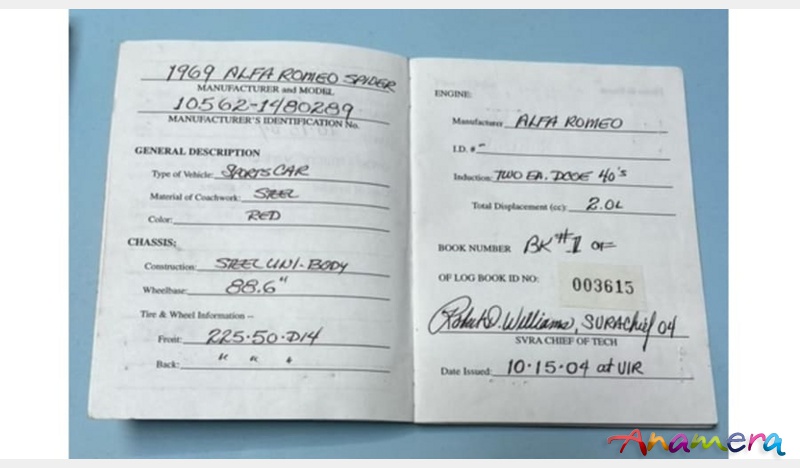 1969 ALFA ROMEO SPIDER
MANUFACTURER and MODEL
10562-1480289
MANUFACTURER'S IDENTIFICATION No.
GENERAL DESCRIPTION
Type of Vehicle: SPORTS CAR
Material of Coachwork: STEEL
Color: RED
CHASSIS:
Construction: STEEL UNI-BODY
Wheelbase: 88.6"
Tire & Wheel Information --
Front: 225-50-D14
Back: " " "
ENGINE:
Manufacturer ALFA ROMEO
I.D. # -
Induction: TWO EA. DCOE 40's
Total Displacement (cc): 2.0L
BOOK NUMBER BK#1 OF
OF LOG BOOK ID NO: 003615
Robert D. Williams, SVRA Chief 04
SVRA CHIEF OF TECH
Date Issued: 10-15-04 at VIR
Anamera